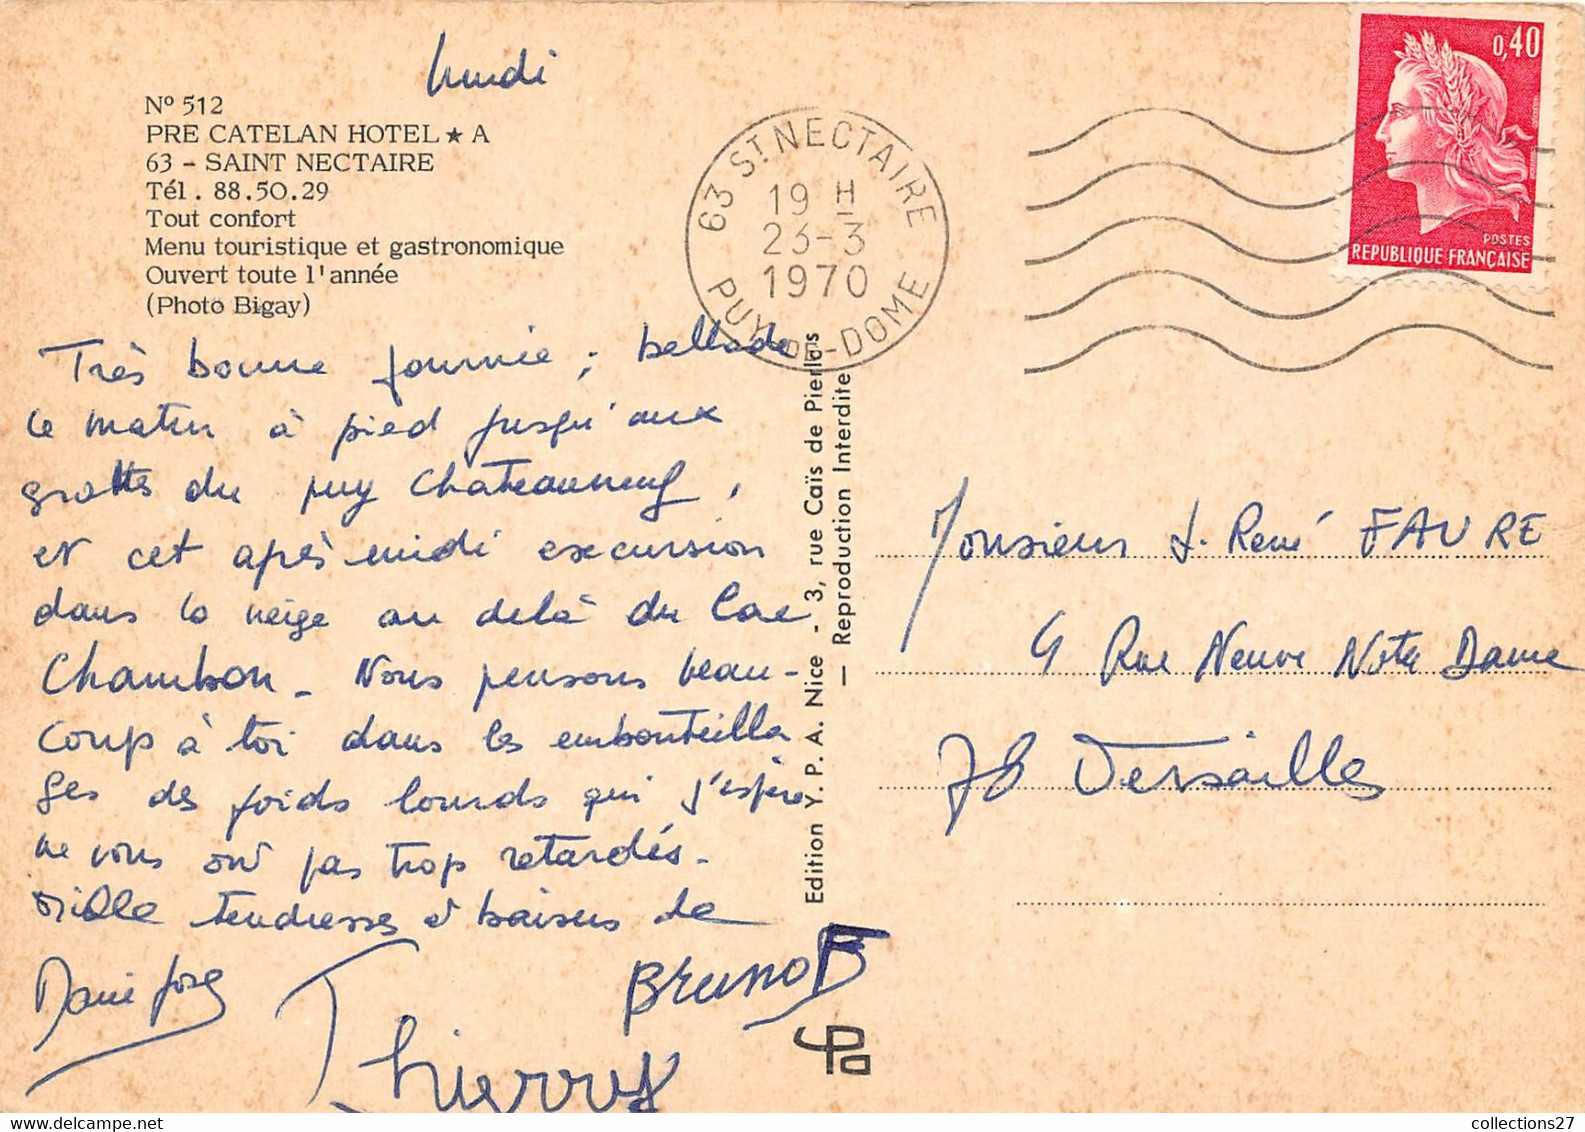 lundi
N° 512
PRE CATELAN HOTEL ★ A
63 - SAINT NECTAIRE
Tél. 88.50.29
Tout confort
Menu touristique et gastronomique
Ouvert toute l'année
(Photo Bigay)
63 ST NECTAIRE
19 H
23-3
1970
PUY-DE-DOME
0,40
POSTES
REPUBLIQUE FRANÇAISE
Très bonne journée ; ballade
ce matin à pied jusqu'aux
grottes du puy Chateauneuf,
et cet après midi excursion
dans la neige au delà du Lac
Chambon - Nous pensons beau-
coup à toi dans les embouteilla
ges des poids lourds qui j'espère
ne vous ont pas trop retardés.
Mille tendresses et baisers de
Marie José
Thierry
Bruno F
Edition Y. P. A. Nice - 3, rue Caïs de Pierlas
— Reproduction Interdite —
Monsieur J. René FAVRE
4 Rue Neuve Notre Dame
78 Versailles
collections27